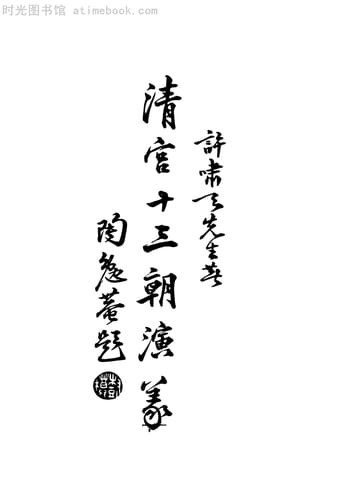 时光图书馆 atimebook.com
許嘯天先生著
清宮十三朝演義
陶
菴題